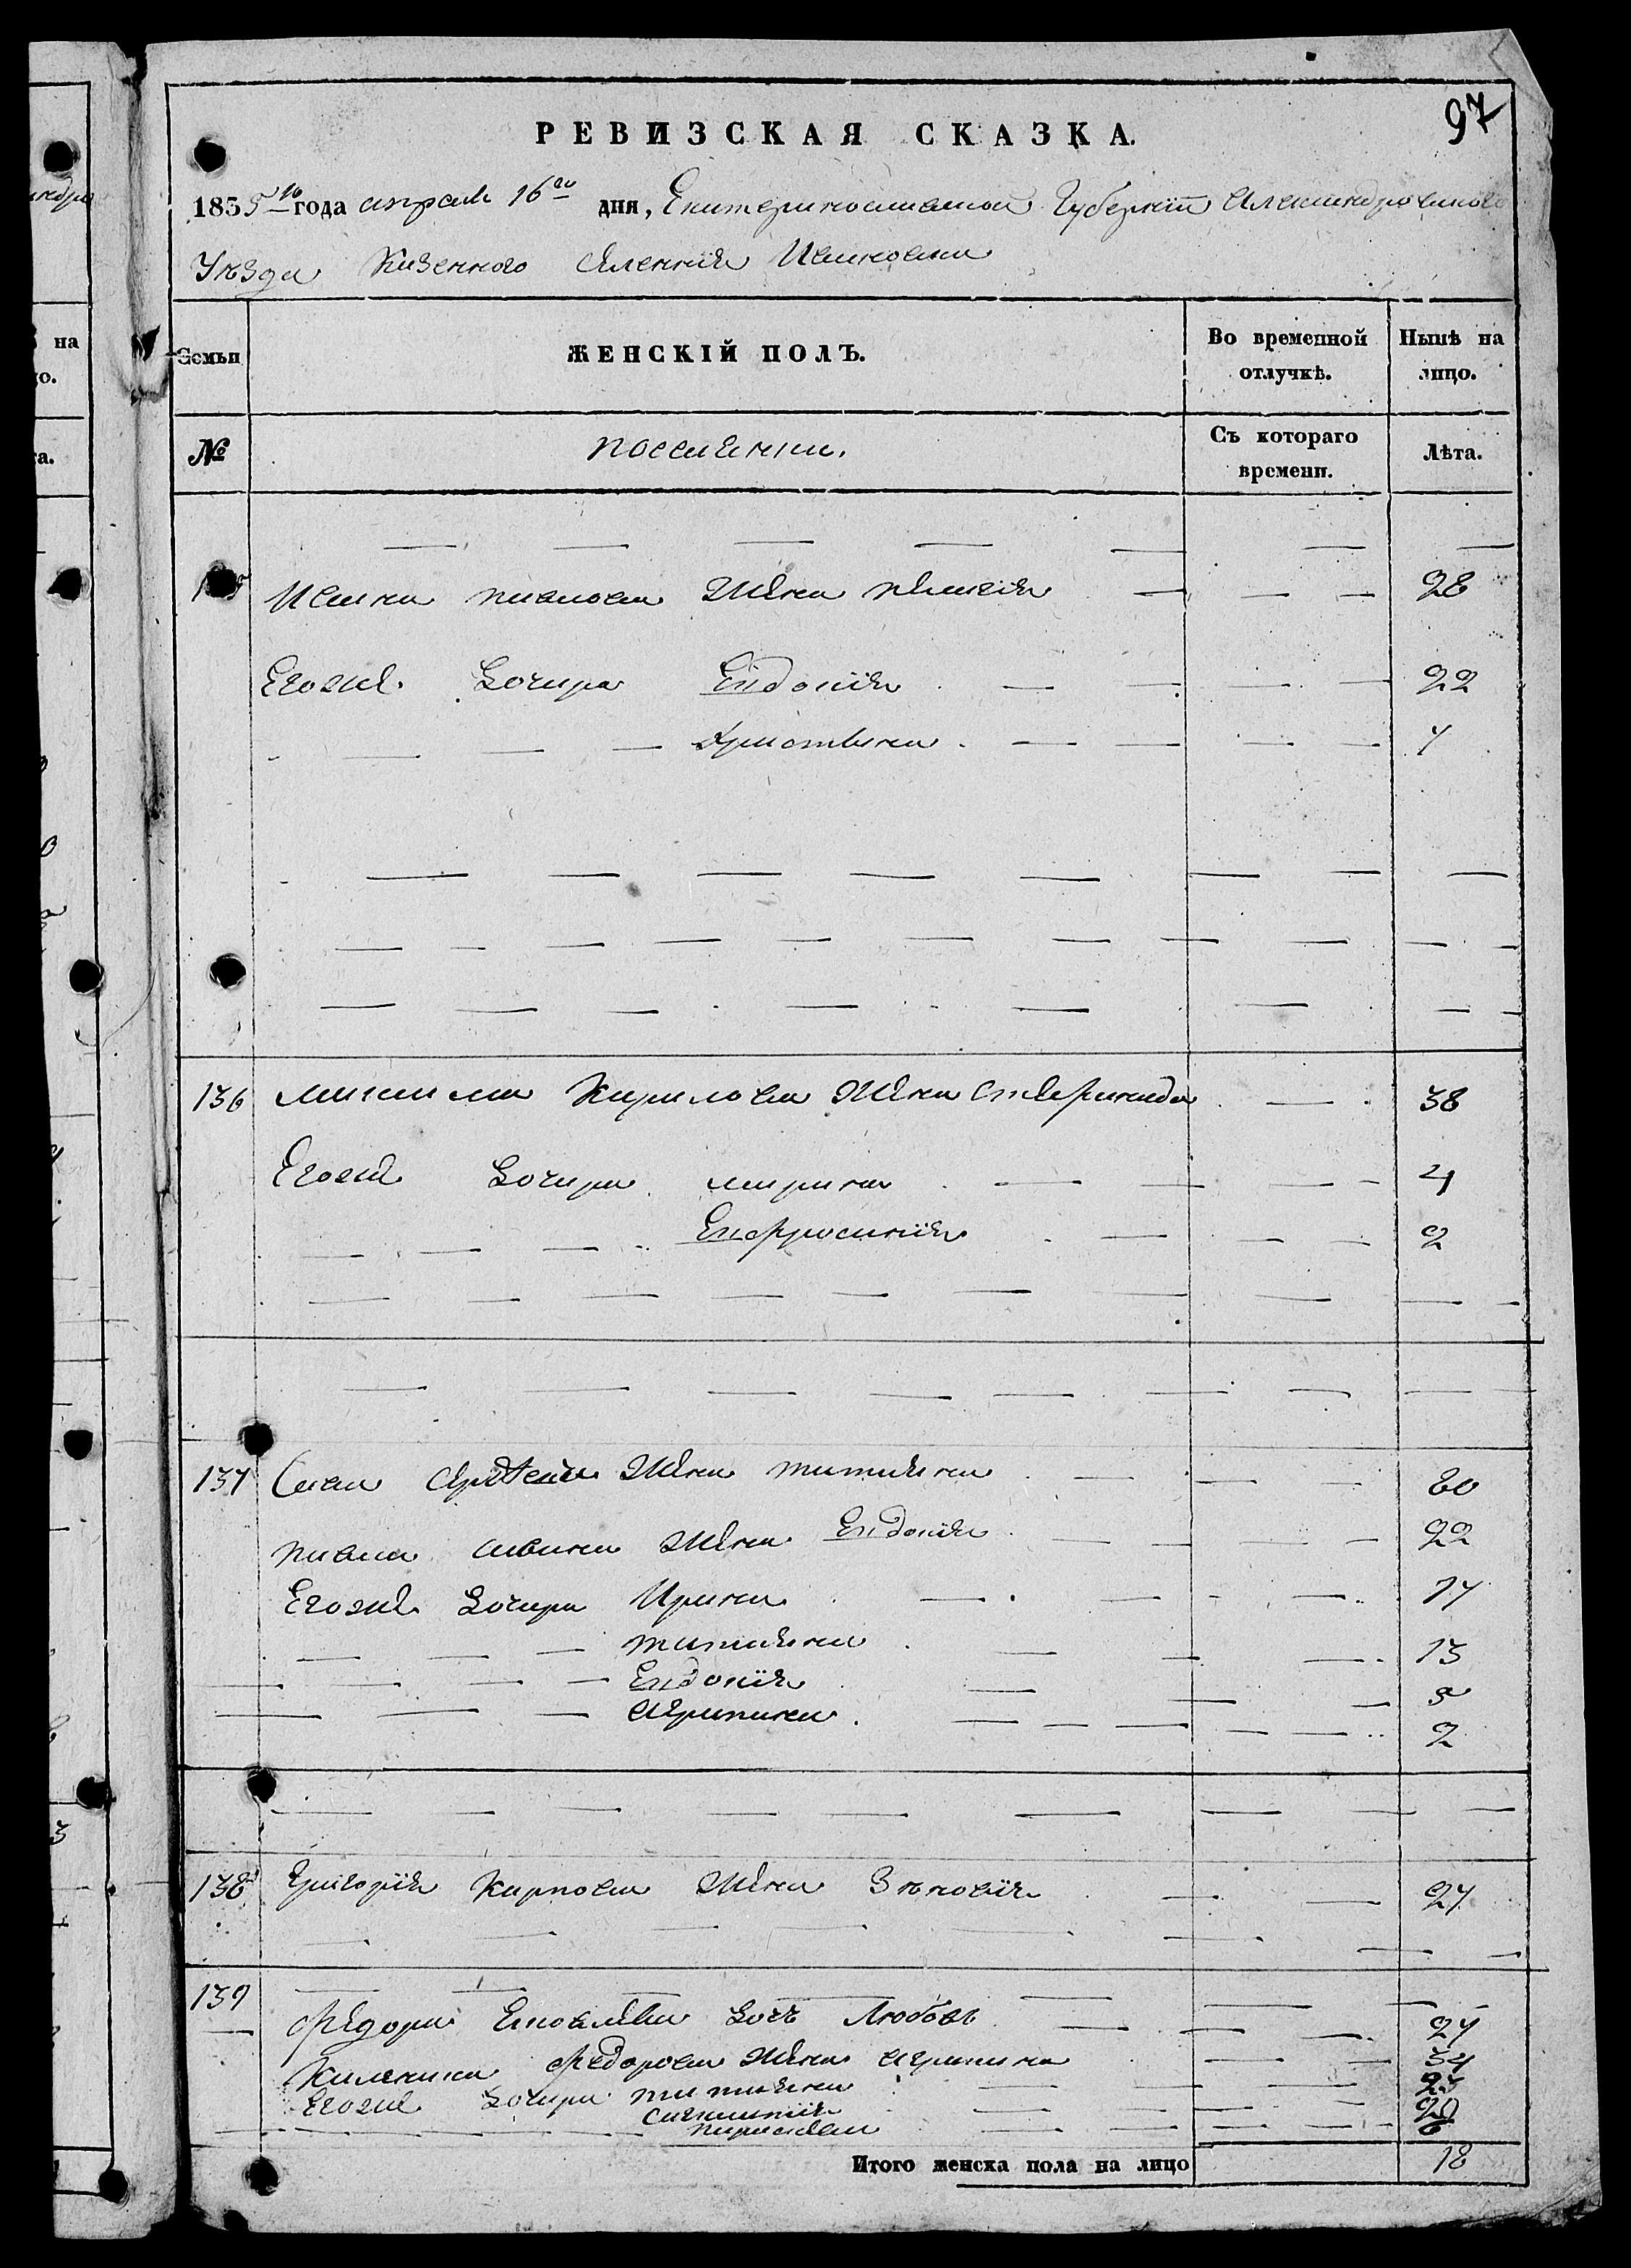 97
РЕВИЗСКАЯ СКАЗКА.
1835го года апреля 16го дня, Екатеринославской Губернїи Александровского
Уѣзда Казенного Селенния Ивановки
Семьи ЖЕНСКІЙ ПОЛЪ. Во временной отлучкѣ. Нынѣ на лицо.
№ поселянии. Съ котораго времени. Лѣта.
Ивана павлова Жена 28
Егожъ Дочери Евдокїя 22
Христина 7
136 максима Кирилова Жена 38
Егожъ Дочери марина 4
Евфросинїя 2
137 Савы Жена татияна 60
павла савина Жена Евдокїя 22
Егожъ Дочери Ирина 17
татияна 13
Евдокїя 5
Агрипина 2
138 Григорїя Карпова Жена Зѣновїя 27
139
Федора Дочь Любовь 27
Калиника Федорова Жена агрипина 34
Егожъ Дочери татияна
параскева 6
Итого женска пола на лицо 18